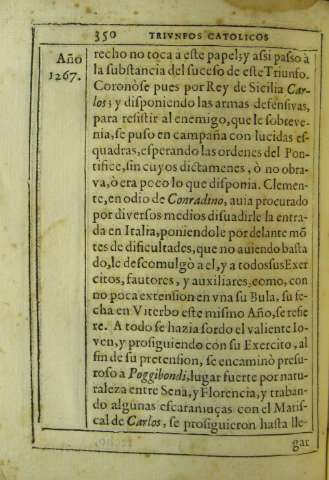 350 TRIVNFOS CATOLICOS
Año
1267.
recho no toca a este papel; y assi passo à
la substancia del suceso de este Triunfo.
Coronòse pues por Rey de Sicilia Car-
los; y disponiendo las armas defensivas,
para resistir al enemigo, que le sobreve-
nia, se puso en campaña con lucidas es-
quadras, esperando las ordenes del Pon-
tifice, sin cuyos dictamenes, ò no obra-
va, ò era poco lo que disponia. Clemen-
te, en odio de Conradino, auia procurado
por diversos medios disuadirle la entra-
da en Italia, poniendole por delante mõ
tes de dificultades, que no auiendo basta
do, le descomulgò a el, y a todos sus Exer
citos, fautores, y auxiliares, como, con
no poca extension en vna su Bula, su fe-
cha en Viterbo este mismo Año, se refie
re. A todo se hazia sordo el valiente Io-
ven, y prosiguiendo con su Exercito, al
fin de su pretension, se encaminò presu-
roso a Poggibondi, lugar fuerte por natu-
raleza entre Sena, y Florencia, y traban-
do algunas escaramuças con el Maris-
cal de Carlos, se prosiguieron hasta lle-
gar